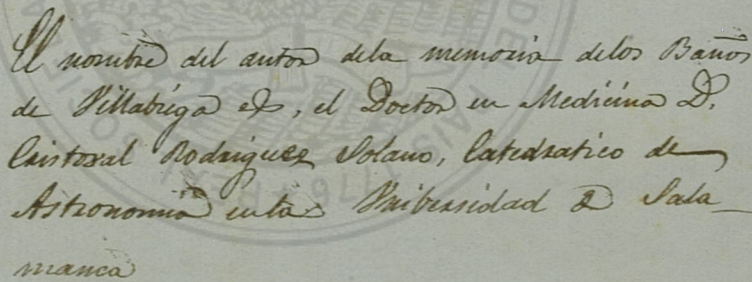 El nombre del autor dela memoria delos Baños
de Villabiega es, el Doctor en Medicina D.
Cristoval Rodriguez Solano, Catedratico de
Astronomia enla Unibersidad de Sala_
manca